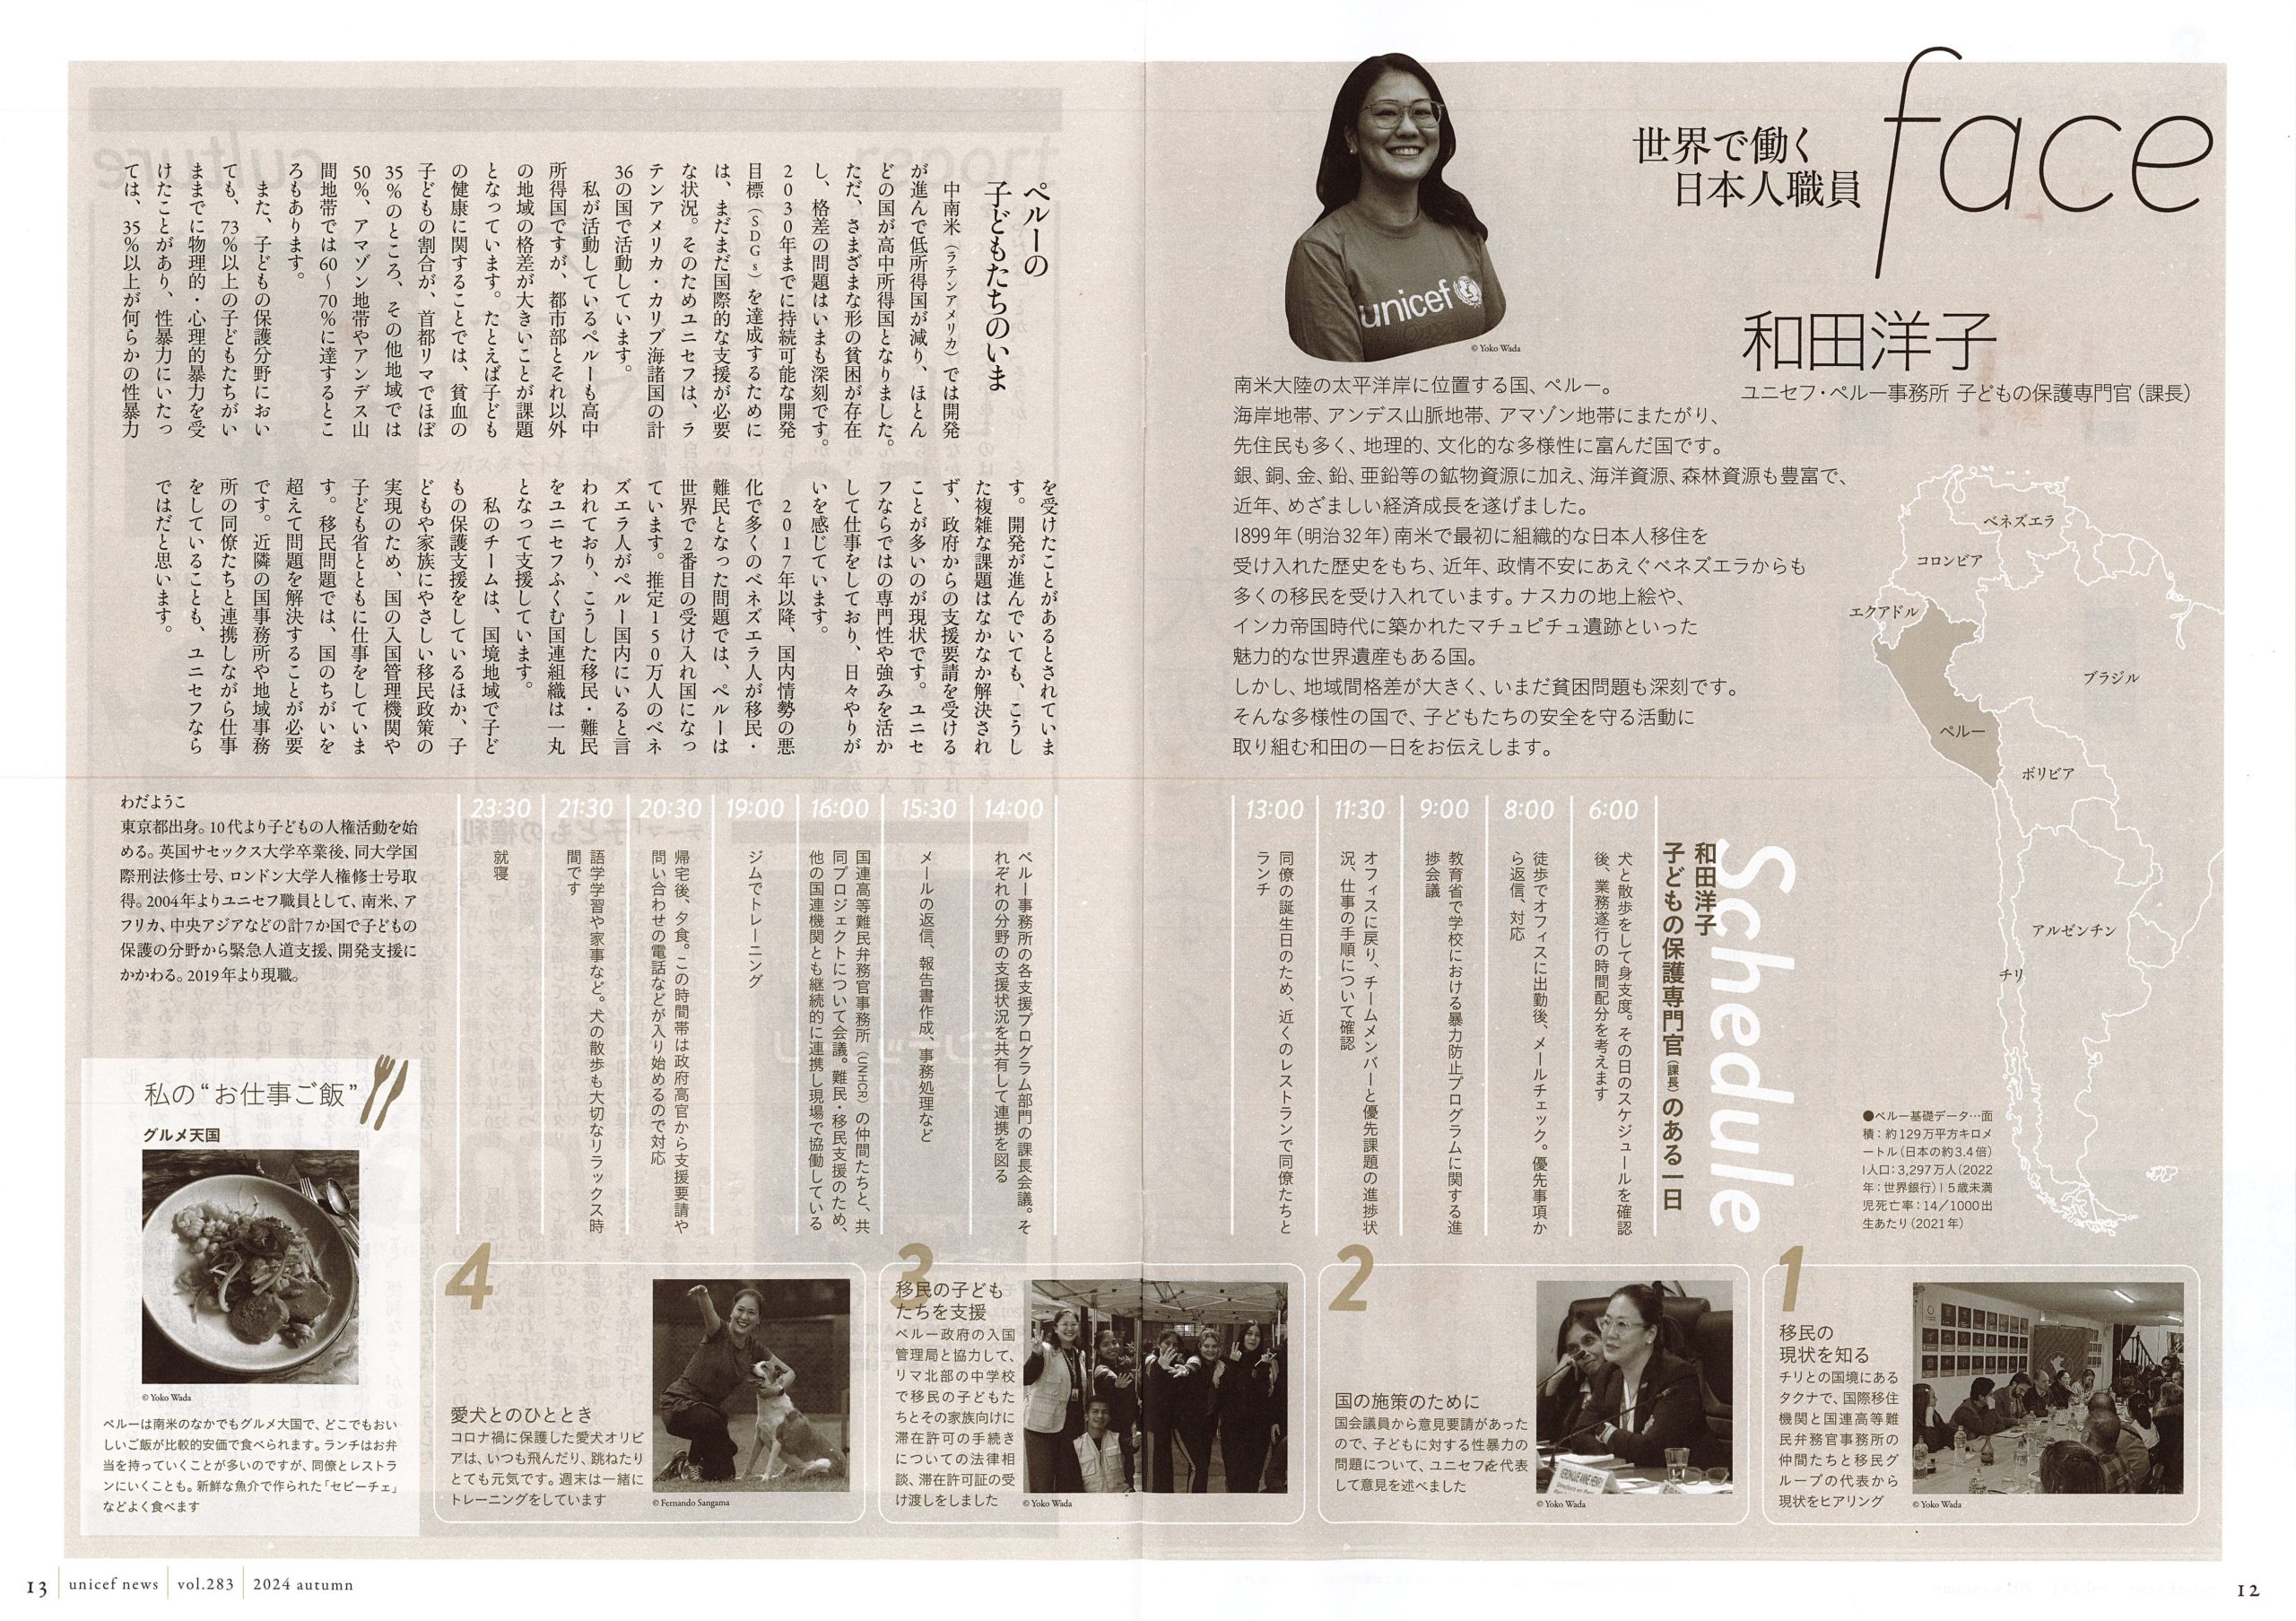 face
世界で働く
日本人職員
和田洋子
ユニセフ・ペルー事務所 子どもの保護専門官（課長）
unicef
© Yoko Wada
南米大陸の太平洋岸に位置する国、ペルー。
海岸地帯、アンデス山脈地帯、アマゾン地帯にまたがり、
先住民も多く、地理的、文化的な多様性に富んだ国です。
銀、銅、金、鉛、亜鉛等の鉱物資源に加え、海洋資源、森林資源も豊富で、
近年、めざましい経済成長を遂げました。
1899年（明治32年）南米で最初に組織的な日本人移住を
受け入れた歴史をもち、近年、政情不安にあえぐベネズエラからも
多くの移民を受け入れています。ナスカの地上絵や、
インカ帝国時代に築かれたマチュピチュ遺跡といった
魅力的な世界遺産もある国。
しかし、地域間格差が大きく、いまだ貧困問題も深刻です。
そんな多様性の国で、子どもたちの安全を守る活動に
取り組む和田の一日をお伝えします。
ベネズエラ
コロンビア
エクアドル
ブラジル
ペルー
ボリビア
アルゼンチン
チリ
●ペルー基礎データ…面
積：約129万平方キロメ
ートル（日本の約3.4倍）
|人口：3,297万人（2022
年：世界銀行）| 5歳未満
児死亡率：14／1000出
生あたり（2021年）
Schedule
和田洋子
子どもの保護専門官（課長）のある一日
6:00
犬と散歩をして身支度。その日のスケジュールを確認
後、業務遂行の時間配分を考えます
8:00
徒歩でオフィスに出勤後、メールチェック。優先事項か
ら返信、対応
9:00
教育省で学校における暴力防止プログラムに関する進
捗会議
11:30
オフィスに戻り、チームメンバーと優先課題の進捗状
況、仕事の手順について確認
13:00
同僚の誕生日のため、近くのレストランで同僚たちと
ランチ
14:00
ペルー事務所の各支援プログラム部門の課長会議。そ
れぞれの分野の支援状況を共有して連携を図る
15:30
メールの返信、報告書作成、事務処理など
16:00
国連高等難民弁務官事務所（UNHCR）の仲間たちと、共
同プロジェクトについて会議。難民・移民支援のため、
他の国連機関とも継続的に連携し現場で協働している
19:00
ジムでトレーニング
20:30
帰宅後、夕食。この時間帯は政府高官から支援要請や
問い合わせの電話などが入り始めるので対応
21:30
語学学習や家事など。犬の散歩も大切なリラックス時
間です
23:30
就寝
1
移民の
現状を知る
チリとの国境にある
タクナで、国際移住
機関と国連高等難
民弁務官事務所の
仲間たちと移民グ
ループの代表から
現状をヒアリング
© Yoko Wada
2
国の施策のために
国会議員から意見要請があった
ので、子どもに対する性暴力の
問題について、ユニセフを代表
して意見を述べました
© Yoko Wada
3
移民の子ども
たちを支援
ペルー政府の入国
管理局と協力して、
リマ北部の中学校
で移民の子どもた
ちとその家族向けに
滞在許可の手続き
についての法律相
談、滞在許可証の受
け渡しをしました
© Yoko Wada
4
愛犬とのひととき
コロナ禍に保護した愛犬オリビ
アは、いつも飛んだり、跳ねたり
とても元気です。週末は一緒に
トレーニングをしています
© Fernando Sangama
ペルーの
子どもたちのいま
中南米（ラテンアメリカ）では開発
が進んで低所得国が減り、ほとん
どの国が高中所得国となりました。
ただ、さまざまな形の貧困が存在
し、格差の問題はいまも深刻です。
2030年までに持続可能な開発
目標（SDGs）を達成するために
は、まだまだ国際的な支援が必要
な状況。そのためユニセフは、ラ
テンアメリカ・カリブ海諸国の計
36の国で活動しています。
私が活動しているペルーも高中
所得国ですが、都市部とそれ以外
の地域の格差が大きいことが課題
となっています。たとえば子ども
の健康に関することでは、貧血の
子どもの割合が、首都リマでほぼ
35％のところ、その他地域では
50％、アマゾン地帯やアンデス山
間地帯では60～70％に達するとこ
ろもあります。
また、子どもの保護分野におい
ても、73％以上の子どもたちがい
ままでに物理的・心理的暴力を受
けたことがあり、性暴力にいたっ
ては、35％以上が何らかの性暴力
を受けたことがあるとされていま
す。開発が進んでいても、こうし
た複雑な課題はなかなか解決され
ず、政府からの支援要請を受ける
ことが多いのが現状です。ユニセ
フならではの専門性や強みを活か
して仕事をしており、日々やりが
いを感じています。
2017年以降、国内情勢の悪
化で多くのベネズエラ人が移民・
難民となった問題では、ペルーは
世界で2番目の受け入れ国になっ
ています。推定150万人のベネ
ズエラ人がペルー国内にいると言
われており、こうした移民・難民
をユニセフふくむ国連組織は一丸
となって支援しています。
私のチームは、国境地域で子ど
もの保護支援をしているほか、子
どもや家族にやさしい移民政策の
実現のため、国の入国管理機関や
子ども省とともに仕事をしていま
す。移民問題では、国のちがいを
超えて問題を解決することが必要
です。近隣の国事務所や地域事務
所の同僚たちと連携しながら仕事
をしていることも、ユニセフなら
ではだと思います。
わだようこ
東京都出身。10代より子どもの人権活動を始
める。英国サセックス大学卒業後、同大学国
際刑法修士号、ロンドン大学人権修士号取
得。2004年よりユニセフ職員として、南米、ア
フリカ、中央アジアなどの計7か国で子どもの
保護の分野から緊急人道支援、開発支援に
かかわる。2019年より現職。
私の“お仕事ご飯”
グルメ天国
© Yoko Wada
ペルーは南米のなかでもグルメ大国で、どこでもおい
しいご飯が比較的安価で食べられます。ランチはお弁
当を持っていくことが多いのですが、同僚とレストラ
ンにいくことも。新鮮な魚介で作られた「セビーチェ」
などよく食べます
13 unicef news vol.283 2024 autumn
12